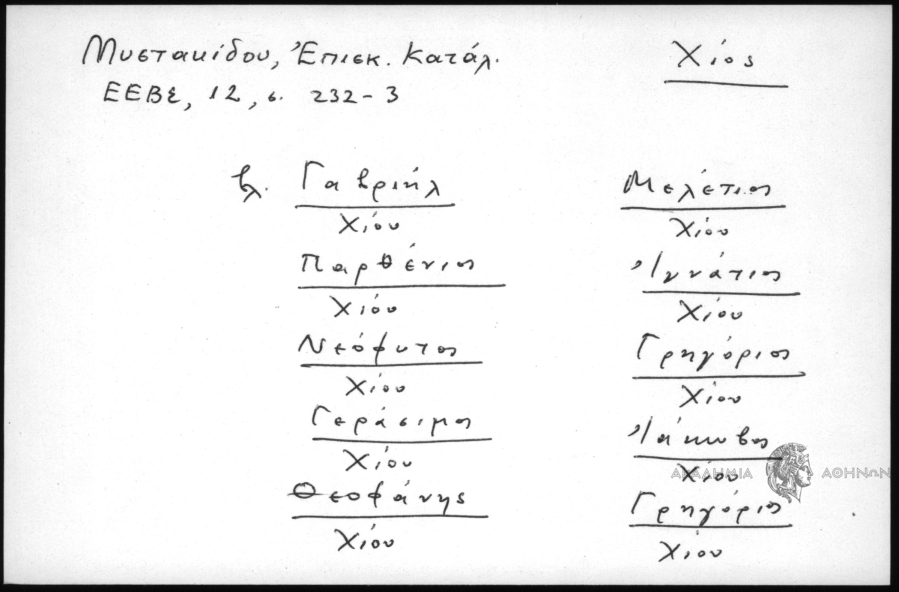 Μυστακίδου, Ἐπισκ. Κατάλ.
ΕΕΒΣ, 12, σ. 232-3
Χίος
βλ. Γαβριήλ
Χίου
Παρθένιος
Χίου
Νεόφυτος
Χίου
Γεράσιμος
Χίου
Θεοφάνης
Χίου
Μελέτιος
Χίου
Ἰγνάτιος
Χίου
Γρηγόριος
Χίου
Ἰάκωβος
Χίου
Γρηγόριος
Χίου
ΑΚΑΔΗΜΙΑ ΑΘΗΝΩΝ